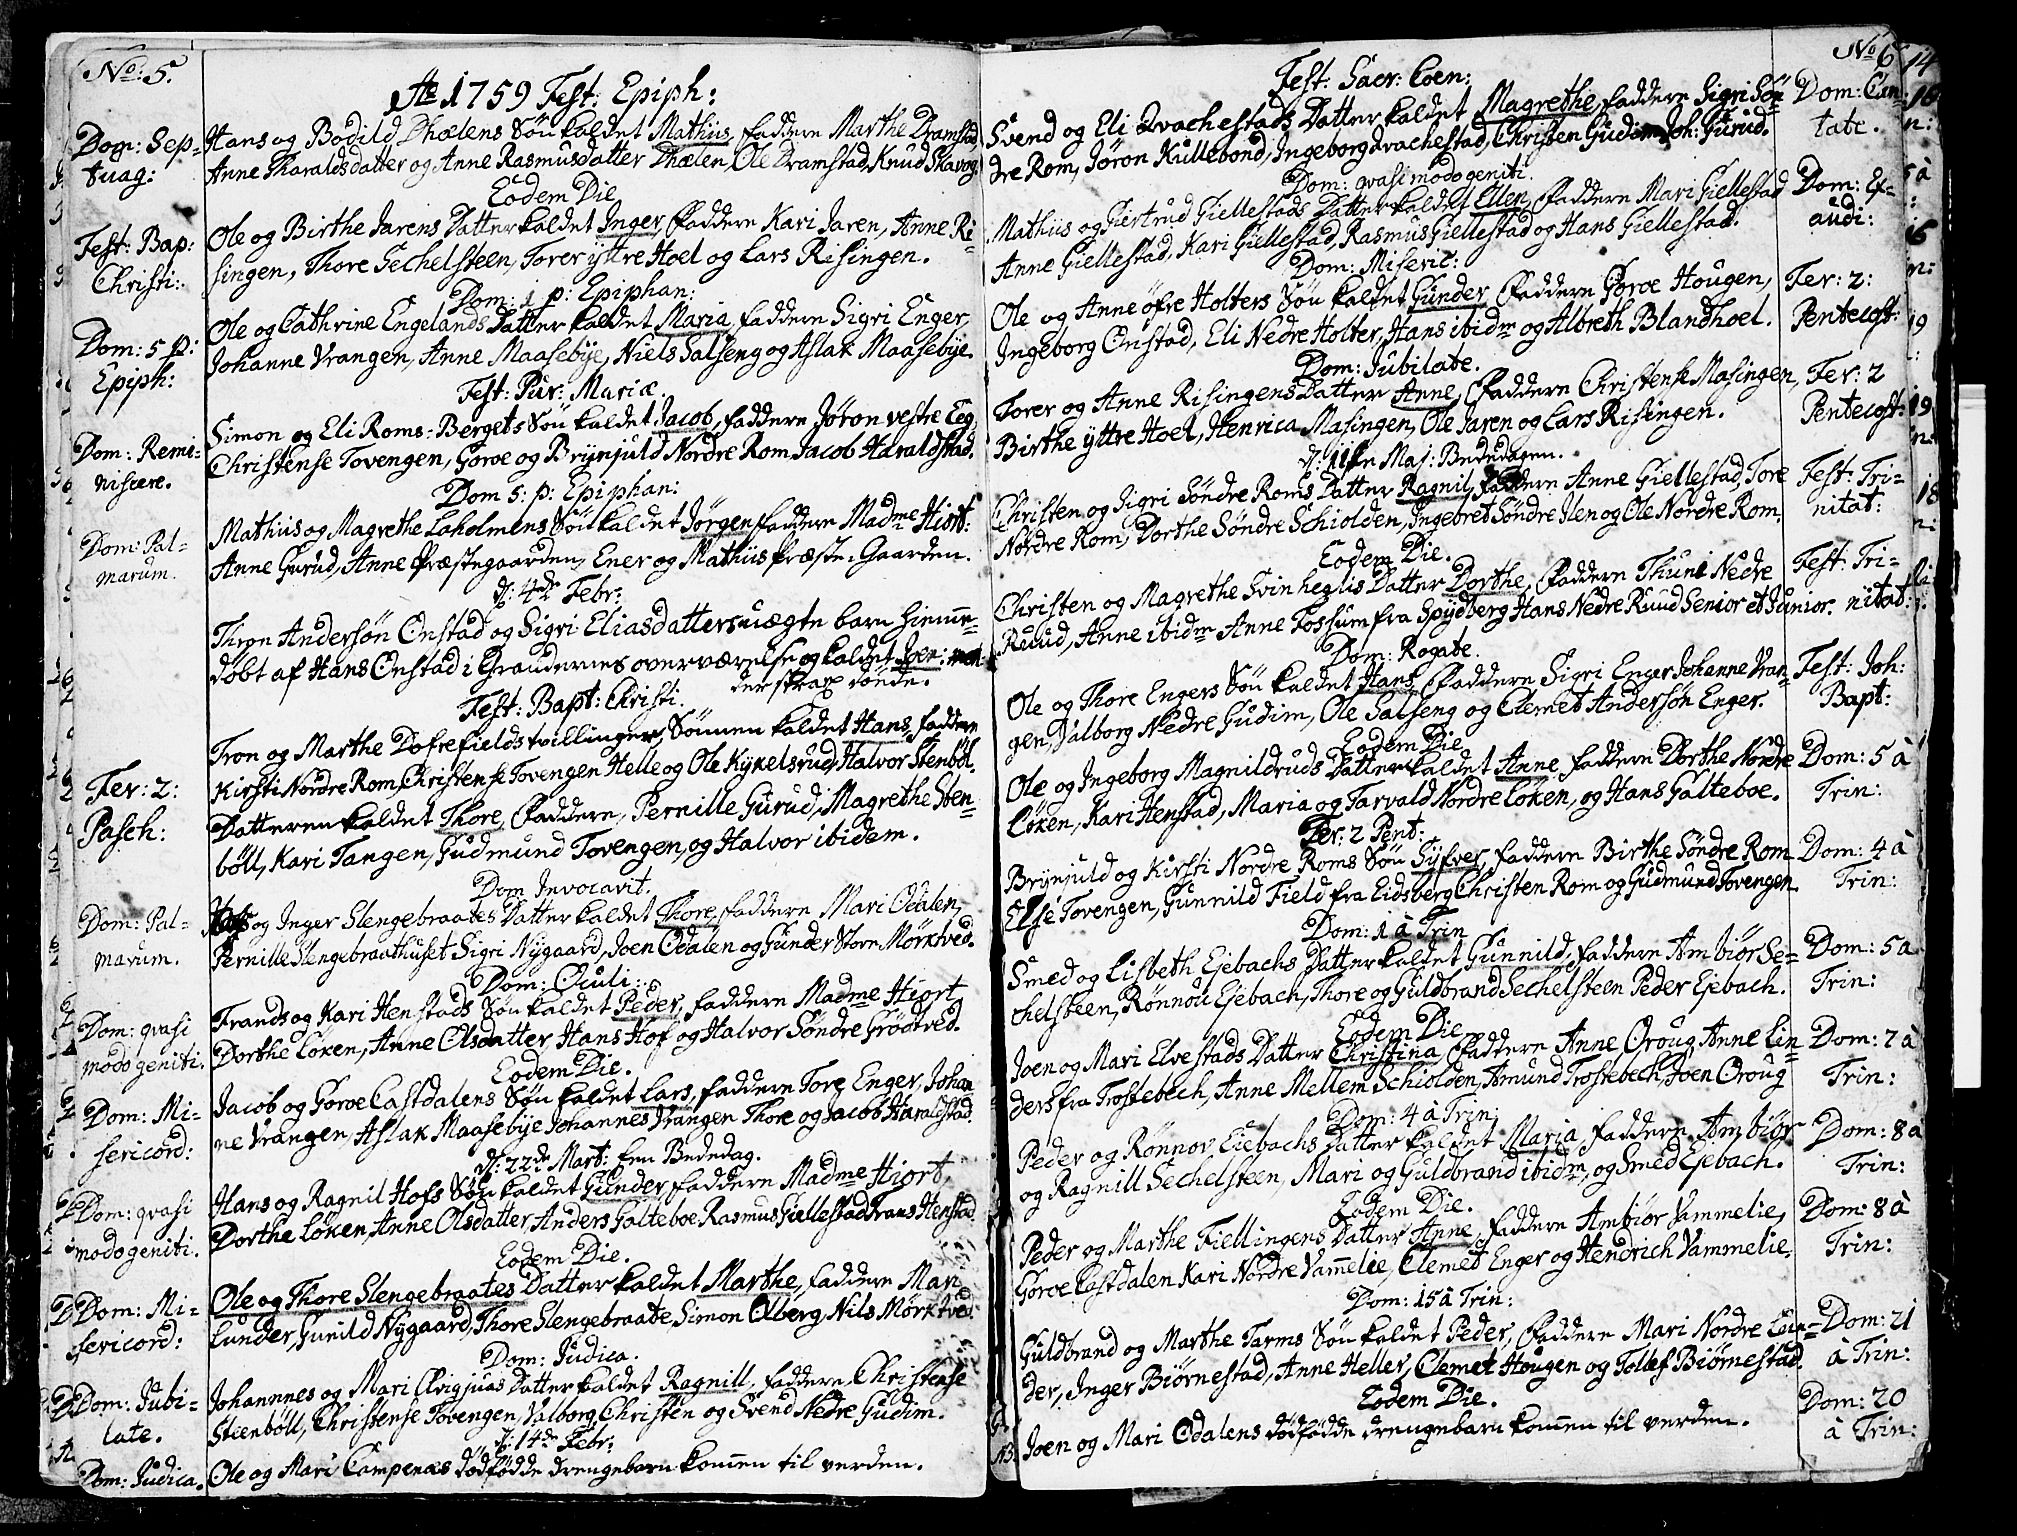 No: 5.
Ao 1759 Fest: Epiph:
Dom: Sep-
tuag:
Hans og Bodild Dhælens Søn kaldet Mathiis, faddere Marthe Dramstad,
Anne Tharaldsdatter og Anne Rasmusdatter Dhælen, Ole Dramstad, Knud Skavog
Eodem Die
Fest: Bap:
Christi:
Ole og Birthe Jarens Datter kaldet Inger, faddere Kari Jaren, Anne Ri-
singen, Thore Sechelsteen, Torer yttre Hoel og Lars Risingen.
Dom: 1 p: Epiphan:
Dom: 5 p:
Epiph:
Ole og Cathrine Engelands Datter kaldet Maria, faddere Sigri Enger,
Johanne Vrangen, Anne Maasebye, Niels Salseng og Aslak Maasebye.
Fest: Pur: Mariæ
Dom: Remi-
niscere.
Simon og Eli Roms-Bergets Søn kaldet Jacob, faddere Jøron vestre Eeg,
Christense Tovengen, Goroe og Brynjuld Nordre Rom Jacob Haraldstad.
Dom 5: p: Epiphan:
Dom: Pal-
marum.
Mathiis og Magrethe Laholmens Søn kaldet Jørgen, faddere Madme Hiort:
Anne Gurud, Anne Præstegaarden, Ener og Mathiis Præste-Gaarden.
d: 4de Febr:
Thron Andersøn Onstad og Sigri Eliasdatters uægte barn hiemme-
døbt af Hans Onstad i Graudernes overværelse og kaldet Joen:
der strax døede.
Fest: Bapt: Christi.
Fer: 2:
Pasch:
Tron og Marthe Dofrefields tvillinger, Sønnen kaldet Hans, faddere
Kirsti Nordre Rom, Christense Tovengen Helle og Ole Kykelsrud, Halvor Stenbøl.
Datteren kaldet Thore, faddere, Pernille Gurud, Magrethe Sten-
bøll, Kari Tangen, Gudmund Tovengen, og Halvor ibidem.
Dom Invocavit.
Dom: Pal-
marum.
og Inger Slengebraates Datter kaldet Thore, faddere Mari Odalen,
Pernille Slengebraathuset Sigri Nygaard, Joen Odalen og Gunder Store Mørktved.
Dom: Oculi:
Dom: qvasi
modogeniti.
Frands og Kari Henstads Søn kaldet Peder, faddere Madme Hiort
Dorthe Løken, Anne Olsdatter Hans Hof og Halvor Søndre Grødtved.
Eodem Die.
Dom: Mi-
sericord:
Jacob og Goroe Castdalens Søn kaldet Lars, faddere Tore Enger, Johan
ne Vrangen, Aslak Maasebye Johannes Vrangen Thore og Jacob Haraldstad.
d: 22de Mart: Een Bededag.
Dom: qvasi
modogeniti.
Hans og Ragnil Hofs Søn kaldet Gunder, faddere Madme Hiort,
Dorthe Løken, Anne Olsdatter, Anders Galteboe Rasmus Giellestad Frans Henstad.
Eodem Die.
Dom: Mi-
sericord:
Ole og Thore Slengebraates Datter kaldet Marthe, faddere Mari
Lunder, Gunild Nygaard, Thore Slengebraate, Simon Olberg Nils Mørktved.
Dom: Judica.
Dom: Jubi-
late.
Johannes og Mari Datter kaldet Ragnill, faddere, Christense
Steenbøll, Christense Tovengen, Valborg, Christen og Svend Nedre Gudim.
d: 14de Febr:
Dom: Judica.
Ole og Mari Campenæs dødfødde drengebarn kommen til verden.
No 6
Fest: Sacr: Coen:
Dom: Can-
tate.
Svend og Eli Qvachestads Datter kaldet Magrethe, faddere Sigri Søn
dre Rom, Jøron Kullebond, Ingeborg Qvachestad, Christen Gudim Joh: Gurud.
Dom: qvasimodogeniti.
Dom: Ex-
audi:
Mathiis og Giertrud Giellestads Datter kaldet Ellen, faddere Mari Giellestad
Anne Giellestad, Kari Giellestad, Rasmus Giellestad og Hans Giellestad.
Dom: Miseric:
Fer: 2:
Pentecost:
Ole og Anne øfre Holters Søn kaldet Gunder, faddere Goroe Hougen,
Ingeborg Onstad, Eli Nedre Holter, Hans ibidm og Albreth Blandhoel.
Dom: Jubilate.
Fer: 2
Pentecost:
Torer og Anne Risingens Datter Anne, faddere Christense Masingen,
Birthe yttre Hoel, Henrica Masingen, Ole Jaren og Lars Risingen.
d: 11te Maj: Bededagen.
Fest: Tri-
nitat:
Christen og Sigri Søndre Roms Datter Ragnil, faddere Anne Giellestad, Tore
Nordre Rom, Dorthe Søndre Schiolden, Ingebret Søndre Ilen og Ole Nordre Rom.
Eodem Die.
Fest: Tri-
nitat:
Christen og Magrethe Svinheglis Datter Dorthe, faddere Thuni Nedre
Ruud, Anne ibidm Anne Fossum fra Spydberg Hans Nedre Ruud Senior et Junior.
Dom: Rogate.
Fest: Joh:
Bapt:
Ole og Thore Engers Søn kaldet Hans, faddere Sigri Enger Johanne Vran-
gen, Valborg Nedre Gudim, Ole Salseng og Clemet Andersøn Enger.
Eodem Die
Dom: 5 à
Trin:
Ole og Ingeborg Magnildruds Datter kaldet Anne, faddere Dorthe Nordre
Løken, Kari Henstad, Maria og Tarvald Nordre Løken, og Hans Galteboe.
Fer: 2 Pent:
Dom: 4 à
Trin:
Brynjuld og Kirsti Nordre Roms Søn Syfver, faddere Birthe Søndre Rom
Else Tovengen, Gunnild Field fra Eidsberg Christen Rom og Gudmund Tovengen
Dom: 1 à Trin
Dom: 5 à
Trin:
Smed og Lisbeth Ejebachs Datter kaldet Gunnild, faddere Ambiør Se-
chelsteen, Rønnou Ejebach, Thore og Guldbrand Sechelsteen Peder Ejebach.
Eodem Die
Dom: 7 à
Trin:
Joen og Mari Elvestads Datter Christina, faddere Anne Oroug Anne Lin-
ders fra Trostebech, Anne Mellem Schiolden, Amund Trostebech, Joen Oroug
Dom: 4 à Trin:
Dom: 8 à
Trin:
Peder og Rønnov Eiebachs Datter kaldet Maria, faddere Ambiør
og Ragnill Sechelsteen, Mari og Guldbrand ibidm, og Smed Ejebach.
Eodem Die.
Dom: 8 à
Trin:
Peder og Marthe Fiellingens Datter Anne, faddere Ambiør Vammelie,
Goroe Castdalen Kari Nordre Vammelie, Clemet Enger og Hendrich Vammelie.
Dom: 15 à Trin:
Dom: 21
à Trin:
Guldbrand og Marthe Tarms Søn kaldet Peder, faddere Mari Nordre Lun-
der, Inger Biørnestad, Anne Heller, Clemet Hougen og Tollef Biørnestad.
Eodem Die.
Dom: 20
à Trin:
Joen og Mari Odalens dødfødde drengebarn kommen til verden.